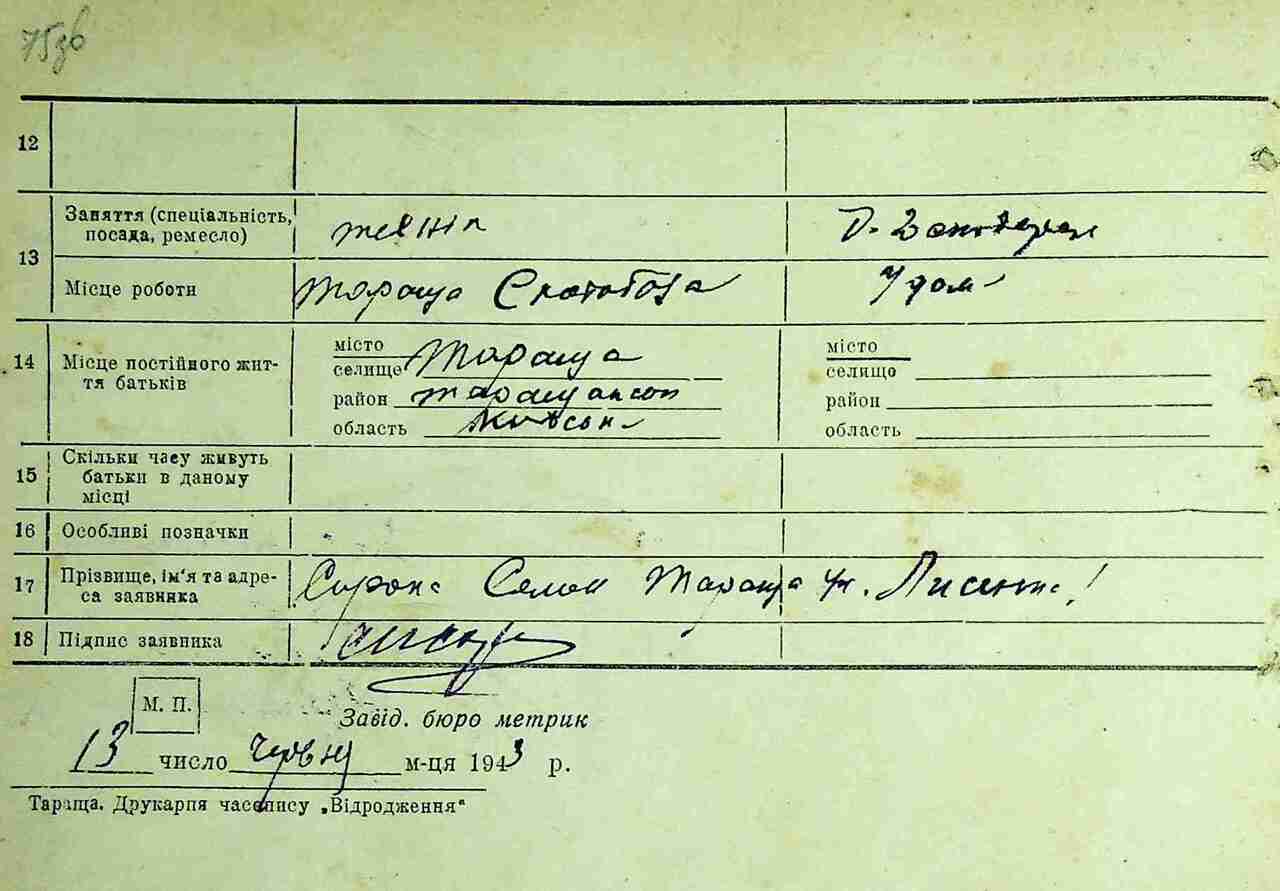 12
13 Заняття (спеціальність, посада, ремесло) технік Д. Господарка
Місце роботи Тараща у дома
14 Місце постійного життя батьків
місто Тараща місто
селище селище
район Таращанськ район
область Київськ область
15 Скільки часу живуть батьки в даному місці
16 Особливі позначки
17 Прізвище, ім'я та адреса заявника Сорока Семен Тараща ул. Лисенка!
18 Підпис заявника
М. П.
Завід. бюро метрик
13 число червня м-ця 1943 р.
Тараща. Друкарня часопису „Відродження"